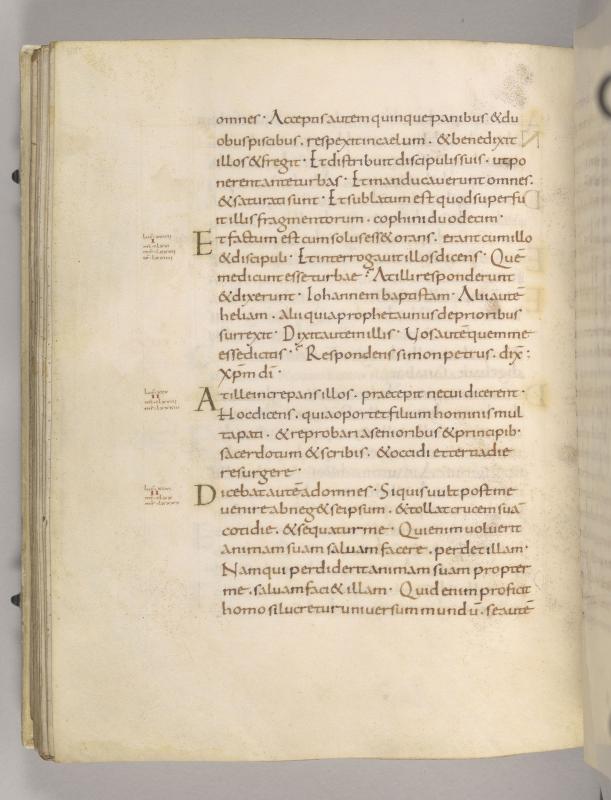 omnes· Acceptis autem quinque panibus & du
obus piscibus. respexit in caelum. & benedixit
illos & fregit· Et distribuit discipulis suis. ut po
nerent ante turbas· Et manducauerunt omnes.
& saturati sunt· Et sublatum est quod superfu
it illis fragmentorum. cophini duodecim·
Et factum est cum solus ess& orans. erant cum illo
& discipuli· Et interrogauit illos dicens· Quē
me dicunt esse turbae? At illi responderunt
& dixerunt· Iohannem baptistam· Alii autē
heliam. alii quia propheta unus de prioribus
surrexit· Dixit autem illis· Uos autē quem me
esse dicitis·? Respondens simon petrus. dix̄:
Xp̄m dī·
At ille increpans illos. praecepit ne cui dicerent·
Hoc dicens. quia oport& filium hominis mul
ta pati· & reprobari a senioribus & principib·
sacerdotum & scribis. & occidi et tertia die
resurgere·
Dicebat autē ad omnes· Si quis uult post me
uenire abneg& se ipsum. & tollat crucem suā
cotidie. & sequatur me· Qui enim uoluerit
animam suam saluam facere. perdet illam·
Nam qui perdiderit animam suam propter
me. saluam faci& illam· Quid enim proficit
homo si lucretur uniuersum mundū. se autē